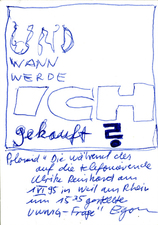 UND
WANN
WERDE
ICH
gekauft ?
"Die während des
auf die telefonierende
Ulrike Reinhard am
1 VII 95 in Weil am Rhein
um 15 35 gestellte
Frage" Egon